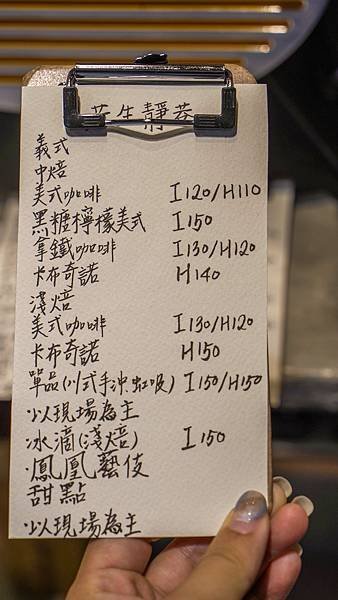 生靜巷
義式
中焙
美式咖啡 I120/H110
黑糖檸檬美式 I150
拿鐵咖啡 I130/H120
卡布奇諾 H140
淺焙
美式咖啡 I130/H120
卡布奇諾 H150
單品(川式手沖虹吸) I150/H150
以現場為主
冰滴(淺焙) I150
鳳凰藝伎
甜點
以現場為主